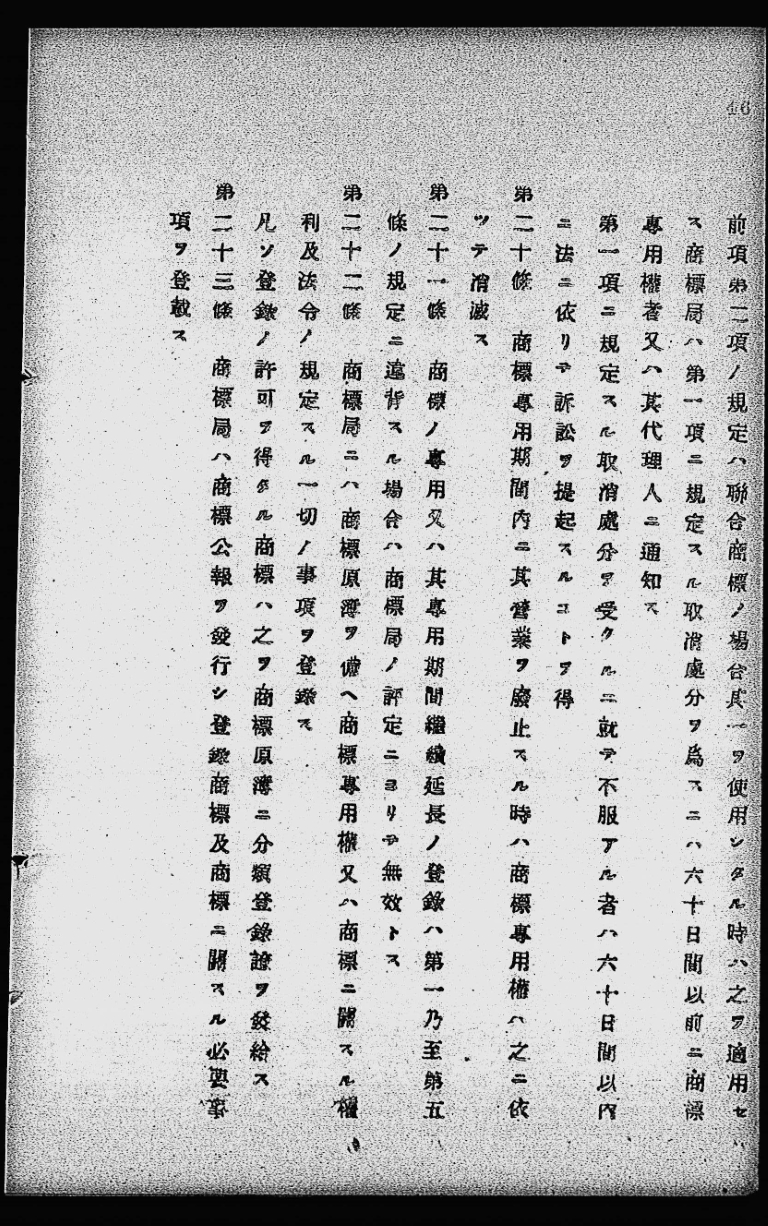 46
前項第二項ノ規定ハ聯合商標ノ場合其一ヲ使用シタル時ハ之ヲ適用セ
ス商標局ハ第一項ニ規定スル取消處分ヲ爲スニハ六十日間以前ニ商標
專用權者又ハ其代理人ニ通知ス
第一項ニ規定スル取消處分ヲ受クルニ就テ不服アル者ハ六十日間以內
ニ法ニ依リテ訴訟ヲ提起スルコトヲ得
第二十條　商標專用期間內ニ其營業ヲ廢止スル時ハ商標專用權ハ之ニ依
ツテ消滅ス
第二十一條　商標ノ專用又ハ其專用期間繼續延長ノ登錄ハ第一乃至第五
條ノ規定ニ違背スル場合ハ商標局ノ評定ニヨリテ無效トス
第二十二條　商標局ニハ商標原簿ヲ備ヘ商標專用權又ハ商標ニ關スル權
利及法令ノ規定スル一切ノ事項ヲ登錄ス
凡ソ登錄ノ許可ヲ得タル商標ハ之ヲ商標原簿ニ分類登錄證ヲ發給ス
第二十三條　商標局ハ商標公報ヲ發行シ登錄商標及商標ニ關スル必要事
項ヲ登載ス